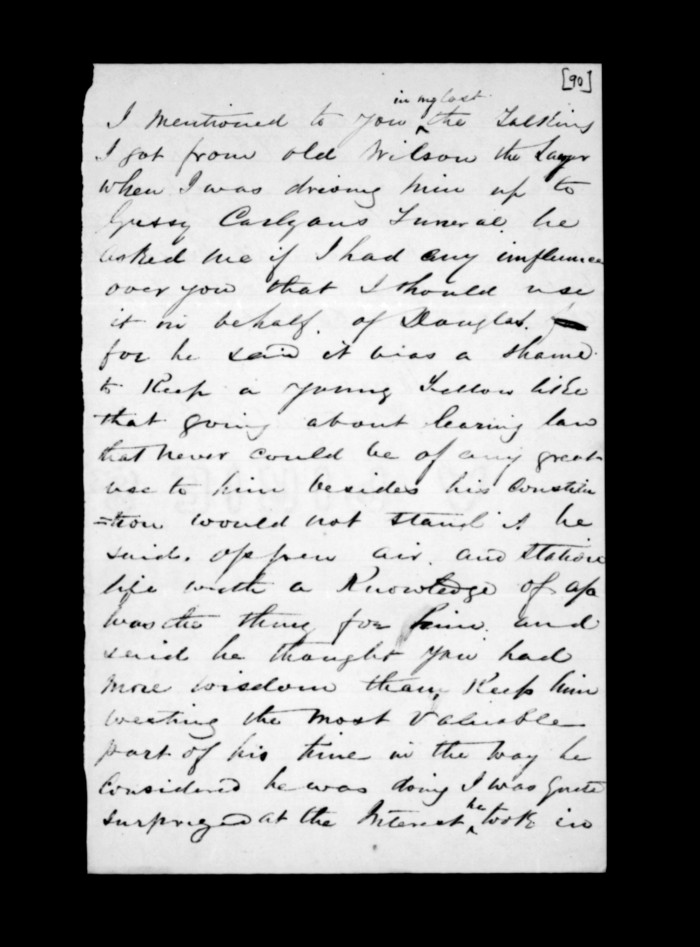 [90]
in my last
I mentioned to you ^ the talking
I got from old Wilson the Layer
when I was driving him up to
Gussy Carlyons Funeral. he
asked me if I had any influence
over you that I should use
it in behalf. of Douglas.
for he said it was a shame.
to Keep a young Fellow like
that going about learing law
that never could be of any great
use to him besides his Constitu
=tion would not stand it he
said. oppen air. and station
life with a Knowledge of
was the thing for him. and
said he thought you had
more wisdom than Keep him
westing the most Valuable
part of his time in the way he
Considered he was doing I was quite
surprized at the Interest ^ he took in